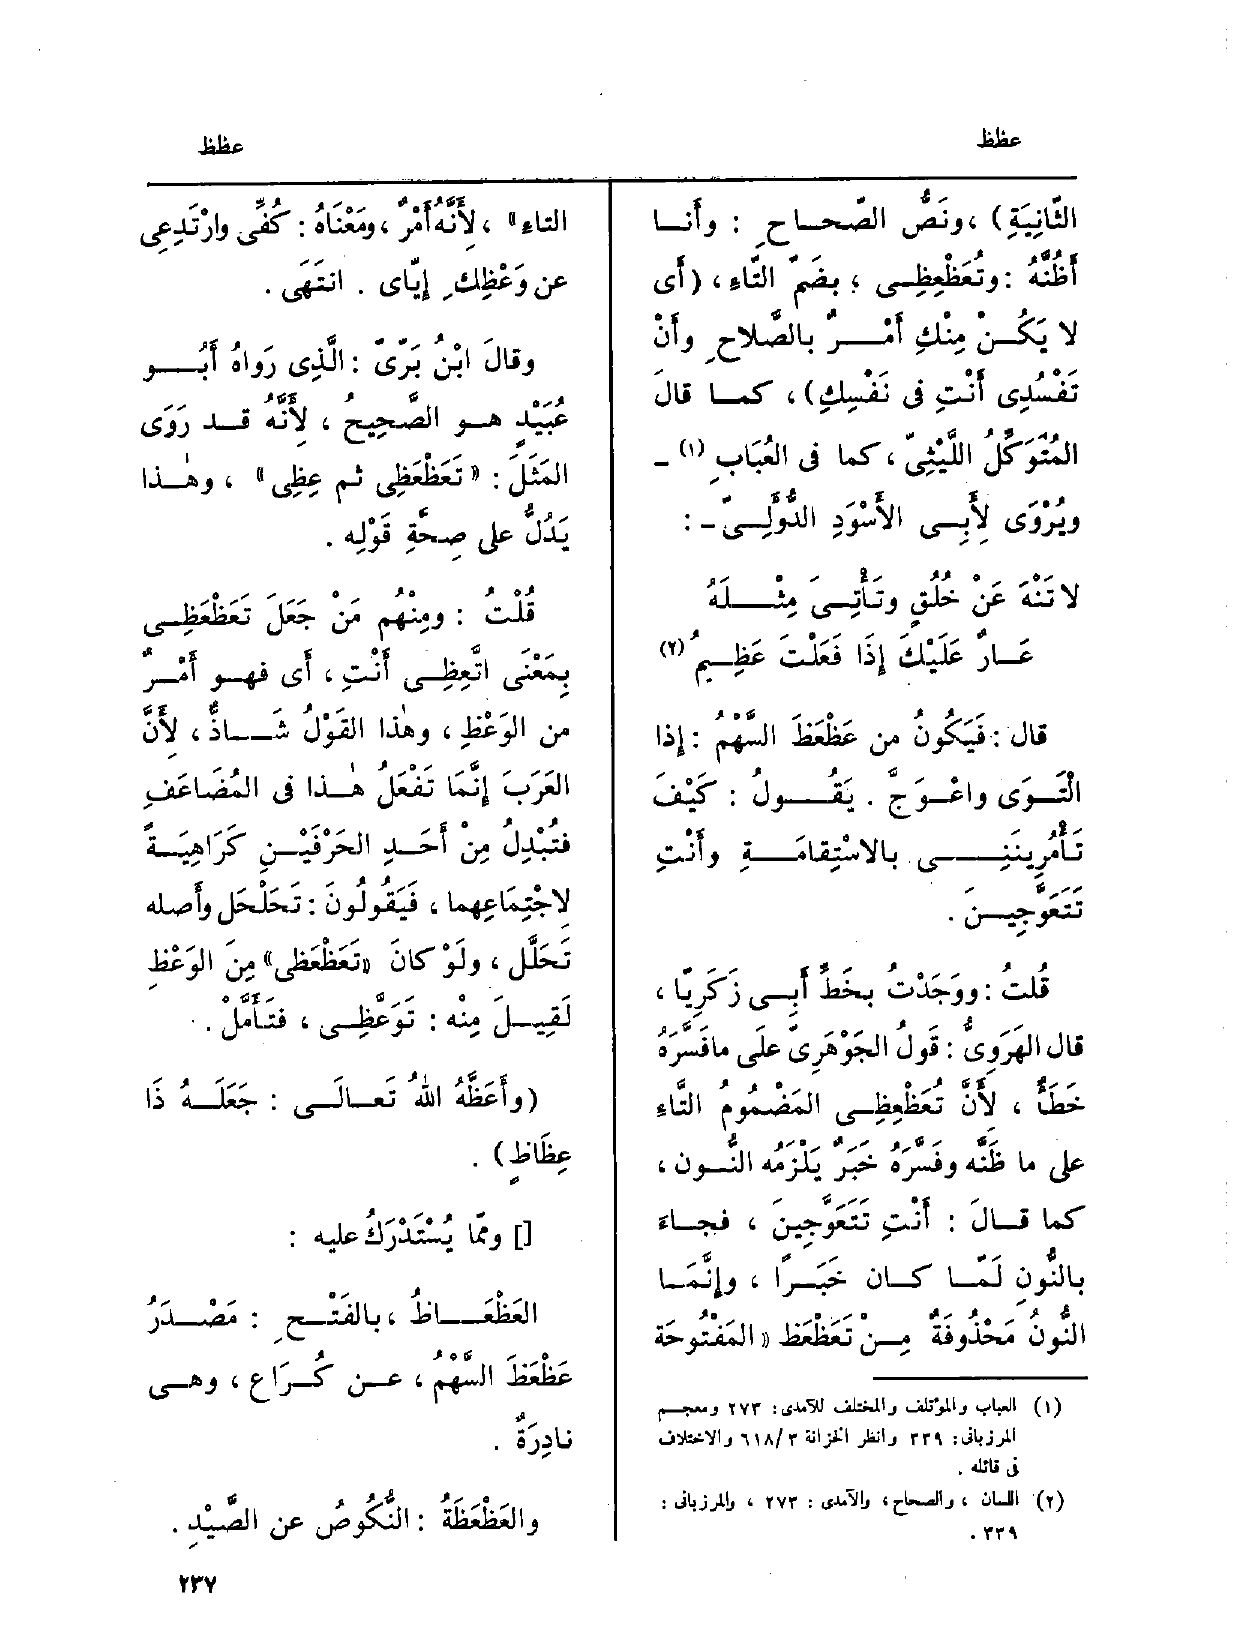 عظظ
عظظ
الثَّانِيَةِ) ، ونَصُّ الصّحـاحِ : وأَنـا
أَظُنُّهُ : وتُعَظْعِظِـى ؛ بضَمِّ التَّاءِ ، (أَى
لا يَكُـنْ مِنْكِ أَمْـرٌ بالصَّلاحِ وأَنْ
تَفْسُدِى أَنْتِ فى نَفْسِكِ) ، كمـا قالَ
المُتَوَكِّلُ اللَّيْثِىّ ، كما فى العُبَابِ (١) ـ
ويُرْوَى لِأَبِـى الأَسْوَدِ الدُّؤَلِـىِّ ـ :
لا تَنْهَ عَنْ خُلُقٍ وتَأْتِـىَ مِثْـلَهُ
عَـارٌ عَلَيْكَ إِذَا فَعَلْتَ عَظِـيمُ (٢)
قال : فيَكُونُ من عَظْعَظَ السَّهْمُ : إِذا
الْتَـوَى واعْـوَجَّ . يَقُـولُ : كَيْفَ
تَأْمُرِينَنِـى بالاسْتِقامَـةِ وأَنْتِ
تَتَعَوَّجِيـنَ .
قُلتُ : ووَجَدْتُ بخَطِّ أَبِـى زَكَرِيّا ،
قال الهَرَوِىُّ : قَولُ الجَوْهَرِىِّ على ما فَسَّرَهُ
خَطَأٌ ، لِأَنَّ تُعَظْعِظِـى المَضْمُومُ التَّاءِ
على ما ظَنَّه وفَسَّرَهُ خَبَرٌ يَلْزَمُه النُّـون ،
كما قـالَ : أَنْتِ تَتَعَوَّجِينَ ، فجـاءَ
بالنُّونِ لَمّـا كـان خَبَـرًا ، وإِنَّمَـا
النُّونُ مَحْذُوفَةٌ مِـنْ تَعَظْعَظ « المَفْتُوحَة
(١) العباب والمؤتلف والمختلف للآمدى: ٢٧٣ ومعجـم
المرزبانى: ٣٣٩ وانظر الخزانة ٣ /٦١٨ والاختلاف
فى قائله .
(٢) اللسان ، والصحاح ، والآمدى : ٢٧٣ ، والمرزبانى :
٣٣٩ .
التاء » ، لِأَنَّهُ أَمْرٌ ، ومَعْنَاهُ : كُفِّى وارْتَدِعِى
عن وَعْظِكِ إِيّاى . انتَهَى .
وقالَ ابْنُ بَرِّىّ : الَّذِى رَوَاهُ أَبُـو
عُبَيْدٍ هـو الصَّحِيحُ ، لِأَنَّهُ قـد رَوَى
المَثَلَ : « تَعَظْعَظِى ثم عِظِى » ، وهٰـذا
يَدُلُّ على صِحَّةِ قَوْلِه .
قُلْتُ : ومِنْهُم مَنْ جَعَلَ تَعَظْعَظِـى
بِمَعْنَى اتَّعِظِـى أَنْتِ ، أَى فهـو أَمْـرٌ
من الوَعْظِ ، وهٰذا القَوْلُ شَـاذٌّ ، لِأَنَّ
العَرَبَ إِنَّمَا تَفْعَلُ هٰـذا فى المُضَاعَفِ
فتُبْدِلُ مِنْ أَحَـدِ الحَرْفَيْـنِ كَرَاهِيَـةً
لاجْتِمَاعِهِما ، فَيَقُولُونَ : تَحَلْحَلَ وأَصله
تَحَلَّلَ ، ولَوْ كانَ « تَعَظْعَظِى » مِنَ الوَعْظِ
لَقِيـلَ مِنْه : تَوَعَّظِـى ، فتَـأَمَّلْ .
(وأَعَظَّهُ اللهُ تَعـالَـى : جَعَلَـهُ ذَا
عِظَاظٍ) .
[] وممّا يُسْتَدْرَكُ عليه :
العَظْعَـاظُ ، بالفَتْـحِ : مَصْـدَرُ
عَظْعَظَ السَّهْمُ ، عـن كُـرَاع ، وهـى
نادِرَةٌ .
والعَظْعَظَةُ : النُّكُوصُ عن الصَّيْدِ .
٢٣٧